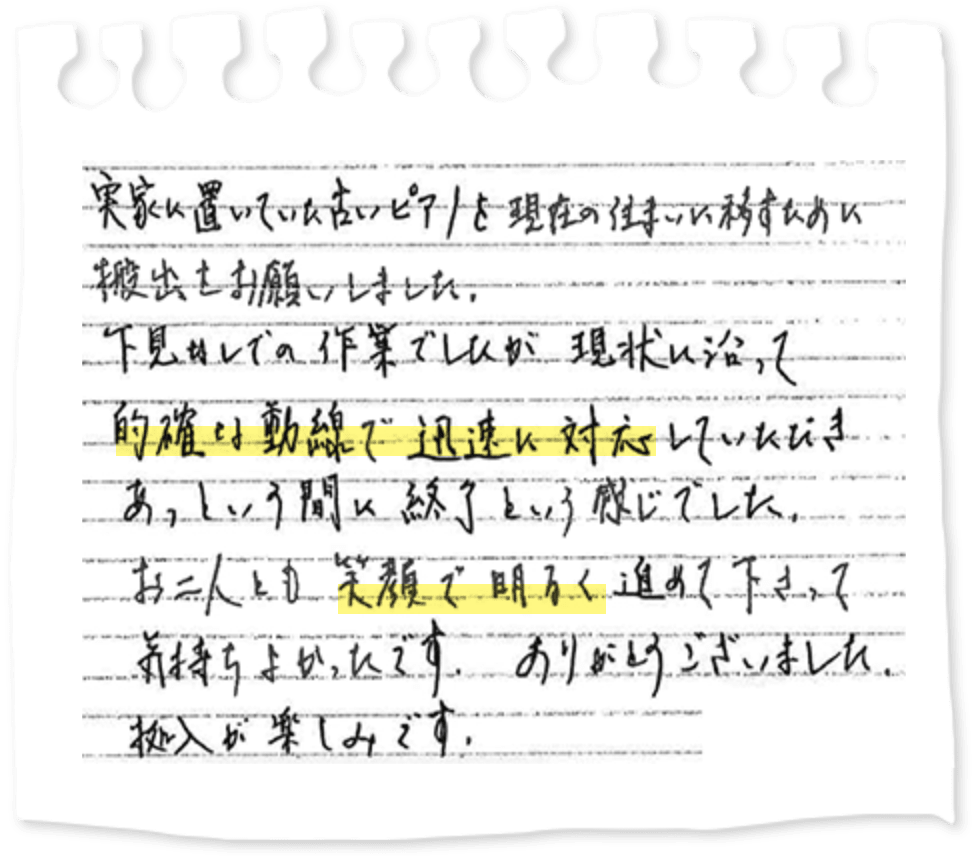 実家に置いていた古いピアノを現在の住まいに移すために
搬出をお願いしました。
下見なしでの作業でしたが現状に沿って
的確な動線で迅速に対応していただき
あっという間に終了という感じでした。
お二人とも笑顔で明るく進めて下さって
気持ちよかったです。ありがとうございました。
搬入が楽しみです。